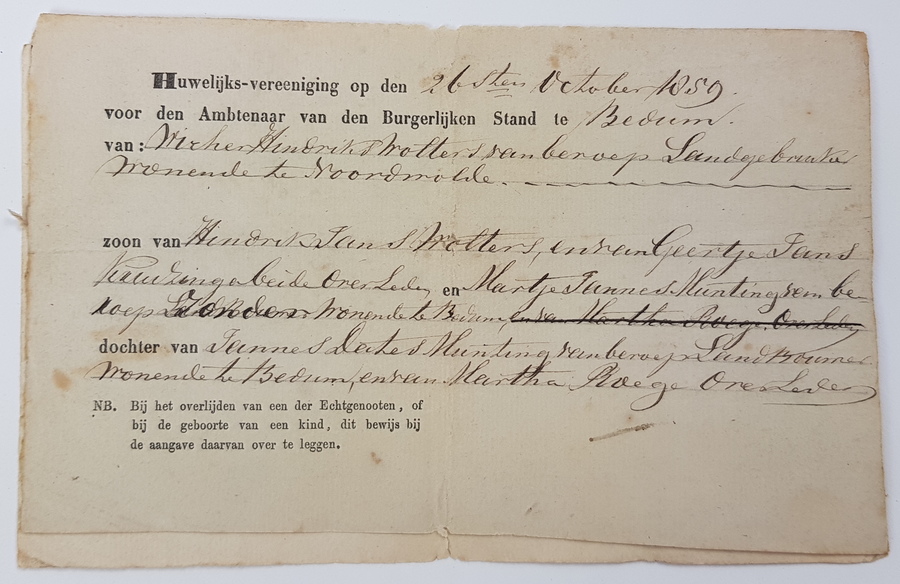 Huwelijks-vereeniging op den 26sten October 1859.
voor den Ambtenaar van den Burgerlijken Stand te Bedum.
van: Hindriks Wolters, van beroep Landgebruiker
Wonende te Noordwolde.
zoon van Hindrik Jans Wolters, en van Geertje Jans
beide Overleden en Martje Jannes Munting van be-
roep Zonder Wonende te Bedum, en van Martha Ploege Overleden
dochter van Jannes Dates Munting, van beroep Landbouwer
Wonende te Bedum, en van Martha Ploege Overleden
NB. Bij het overlijden van een der Echtgenooten, of
bij de geboorte van een kind, dit bewijs bij
de aangave daarvan over te leggen.